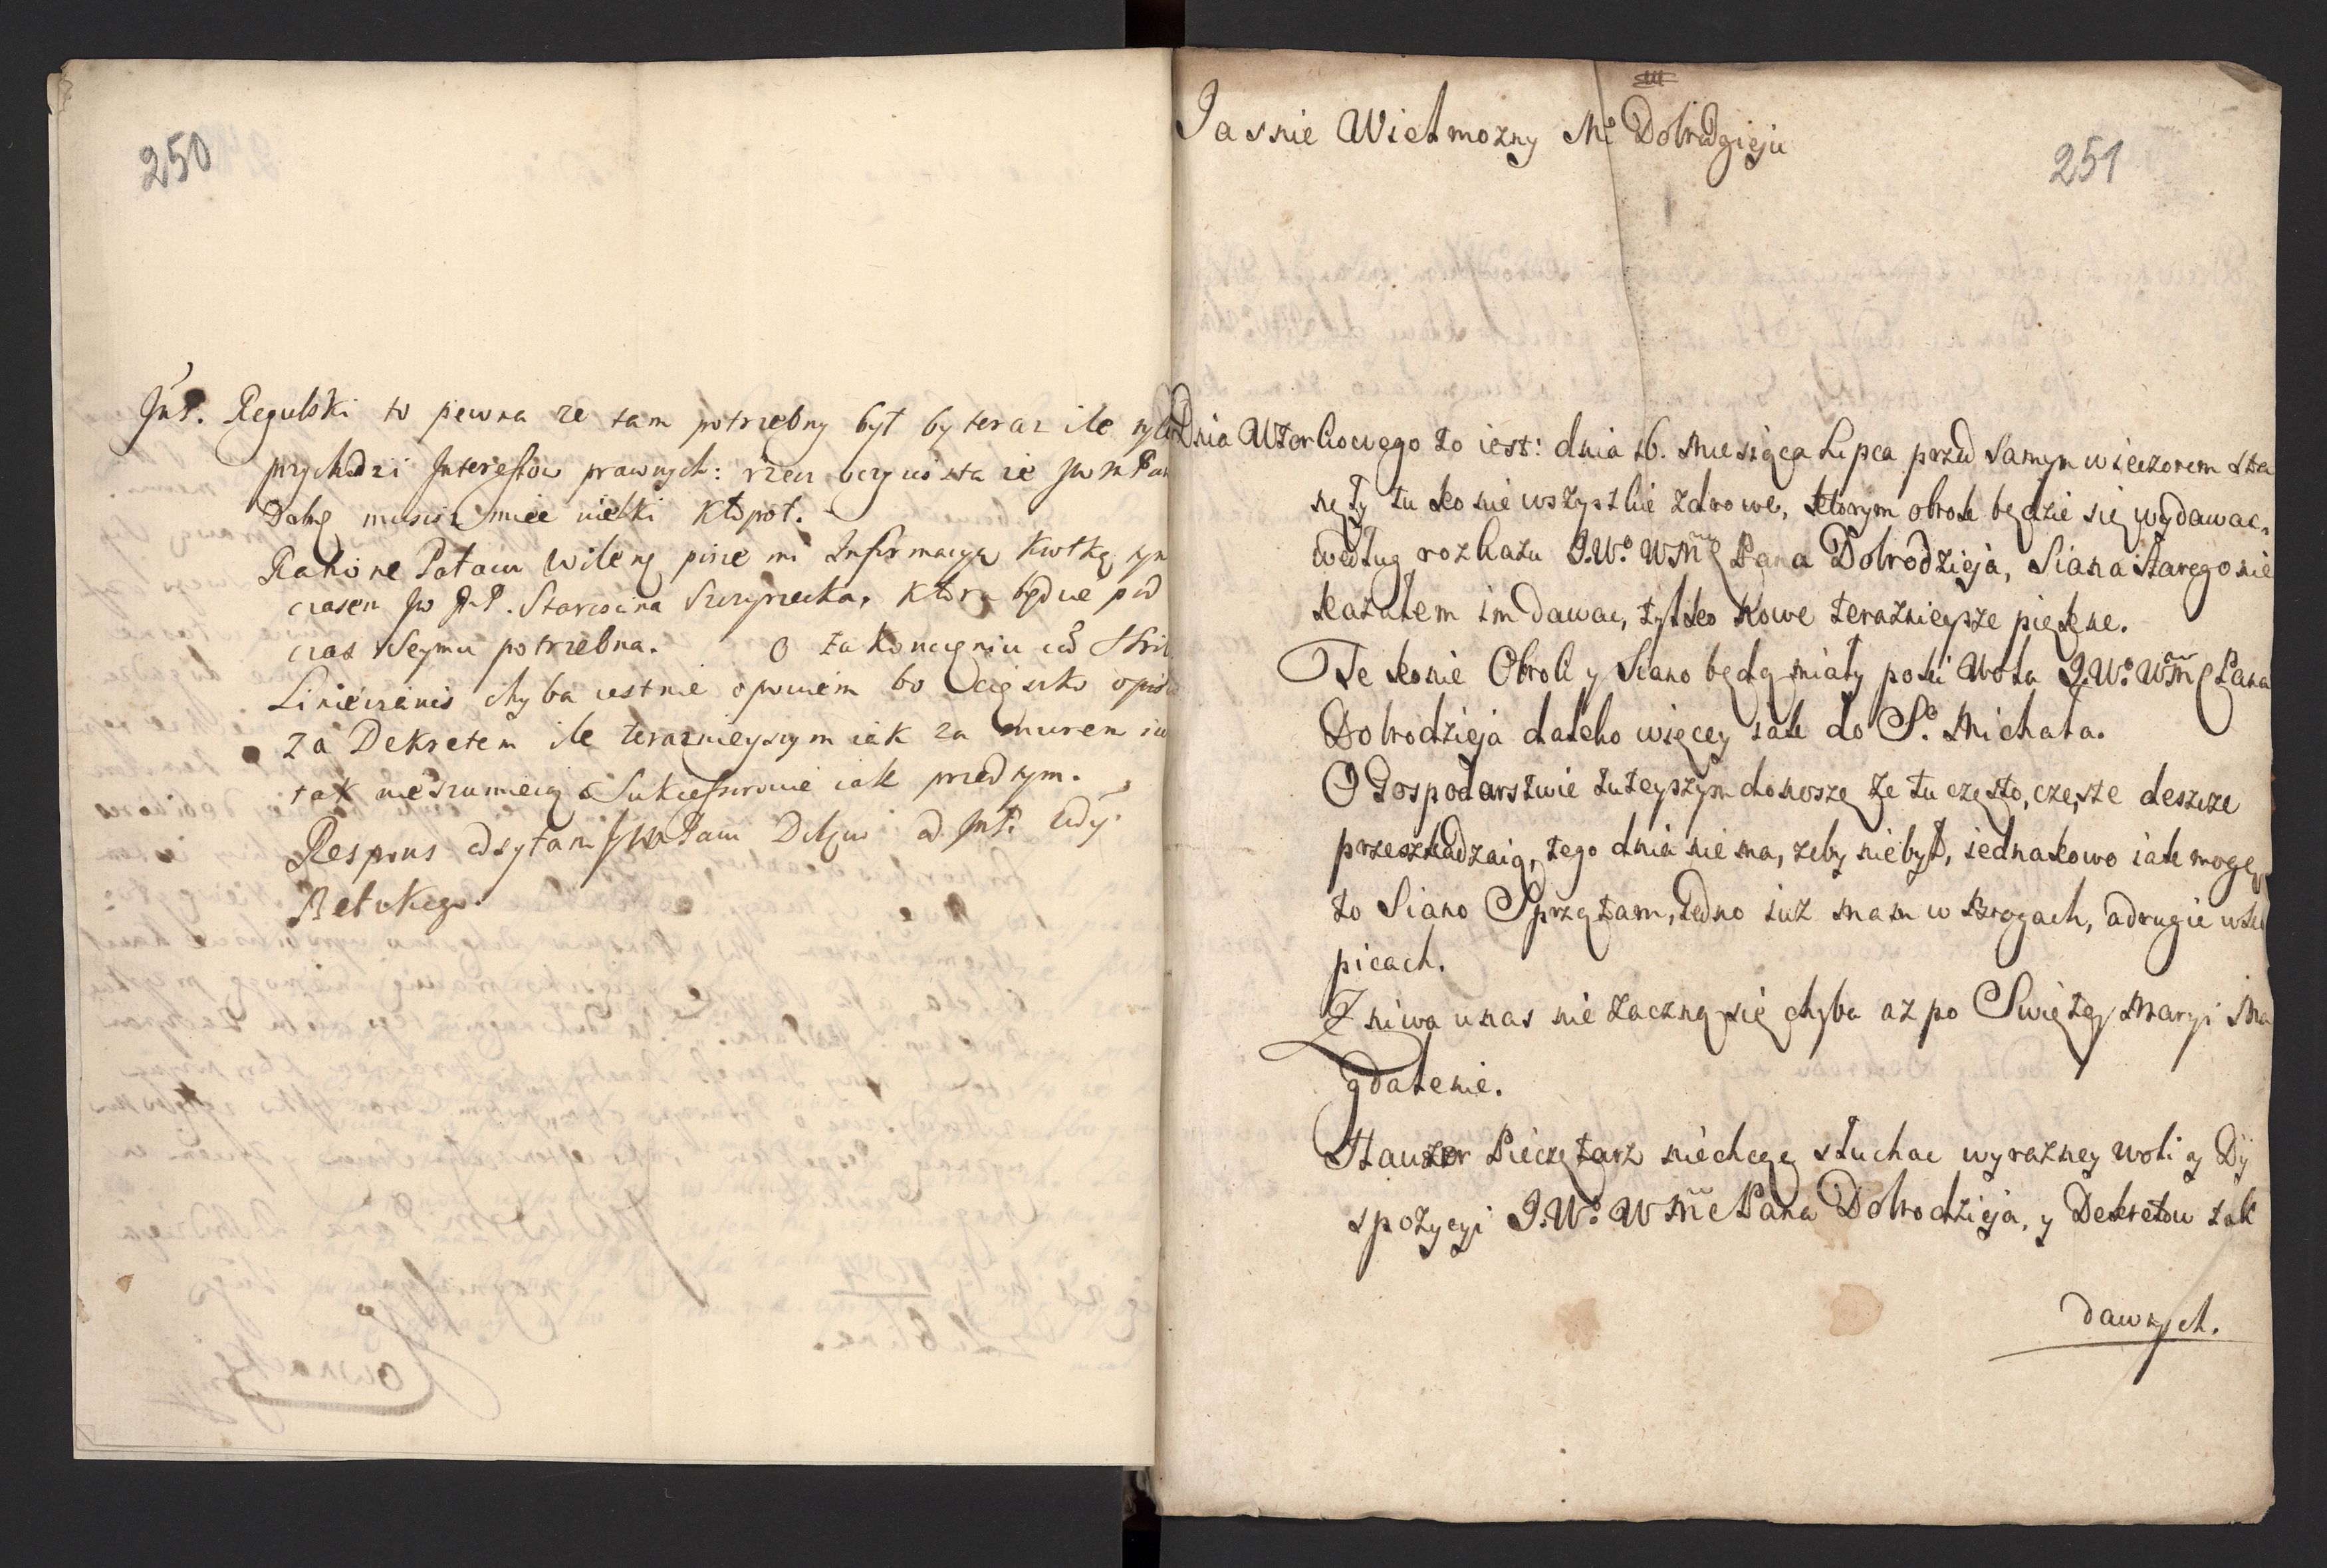 250
JmP. Regulski to pewna ze tam potrzebny był by teraz ile
przychodzi Interessow prawnych: rzecz oczywista ze
musisz miec kłopot.
pisze mi Informacya krotką
czasem Jw JmP. Starościna ktora będzie pod
czas Seymu potrzebna. O zakonczeniu
chyba ustnie opowiem bo cięszko
za Dekretem ile teraznieyszym iak za murem
tak nieszumieią Sukcessorowie iak przed tym.
Respons odsyłam od JmP.
251
Jasnie Wielmozny Mo Dobrodzieju
Dnia Wtorkowego to iest: dnia 16. Miesiąca Lipca przed samym wieczorem sta
nęły tu konie wszystkie zdrowe, ktorym obrok będzie się wydawac,
według rozkazu J.W.o WMc Pana Dobrodzieja, Siana Starego nie
kazałem im dawac, tylko nowe teraznieysze piękne.
Te konie Obrok y Siano będą miały poki Wola J.W.o WMc Pana
Dobrodzieja daleko więcey iak do S.o Michała.
O Gospodarstwie tuteyszym donoszę ze tu często, częste deszcze
przeszkadzaią, tego dnia niema, zeby niebył, iednakowo iak mogę
to Siano Sprzątam, iedno iuz mam w Brogach, a drugie w ko
picach.
Zniwa unas nie zaczną się chyba az po Swiętey Maryi Ma
gdalenie.
Hauzer Pieczętarz niechcę słuchac wyrazney woli y Dy
spozycyi J.W.o WMc Pana Dobrodzieja, y Dekretow tak
dawnych.